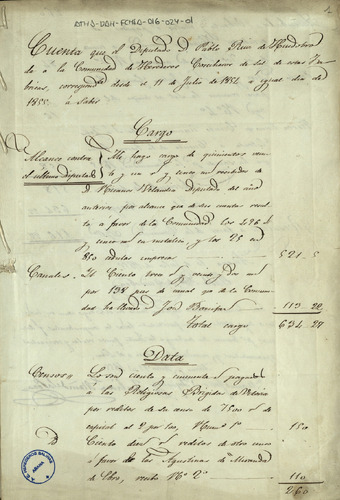 ATHA-DAH-FCHSD-016-024-01
Cuenta que el Diputado D Pablo Ruiz de Huidobro
da á la Comunidad de Herederos Concheros de Sal de estas Fa-
bricas, correspondte desde el 11 de Julio de 1854 á igual dia de
1855 á Saber
Cargo
Alcance contra
el ultimo Diputado
Me hago cargo de quinientos vein-
te y un rs y cinco ms recibidos de
D Mariano Velandia Diputado del año
anterior por alcance que de sus cuentas resul-
ta a favor de la Comunidad los 496 rs
y cinco ms en metalico y los 25 en
850 cedulas impresas 521,, 5
Canales. It Ciento trece rs y veinte y dos ms
por 138 pies de canal que de la Comuni-
dad ha llevado José 113,, 22
Total cargo 634,, 27
Data
Censos Lo son ciento y cincuenta rs pagados
a las Religiosas Brigidas de Vitoria
por reditos de su censo de 7500 rs de
capital al 2 por 100, Recivo Nº 1º 150
Ciento diez rs reditos de otro censo
á favor de las Agustinas de Miranda
de Ebro, recibo Nº 2º 110
260